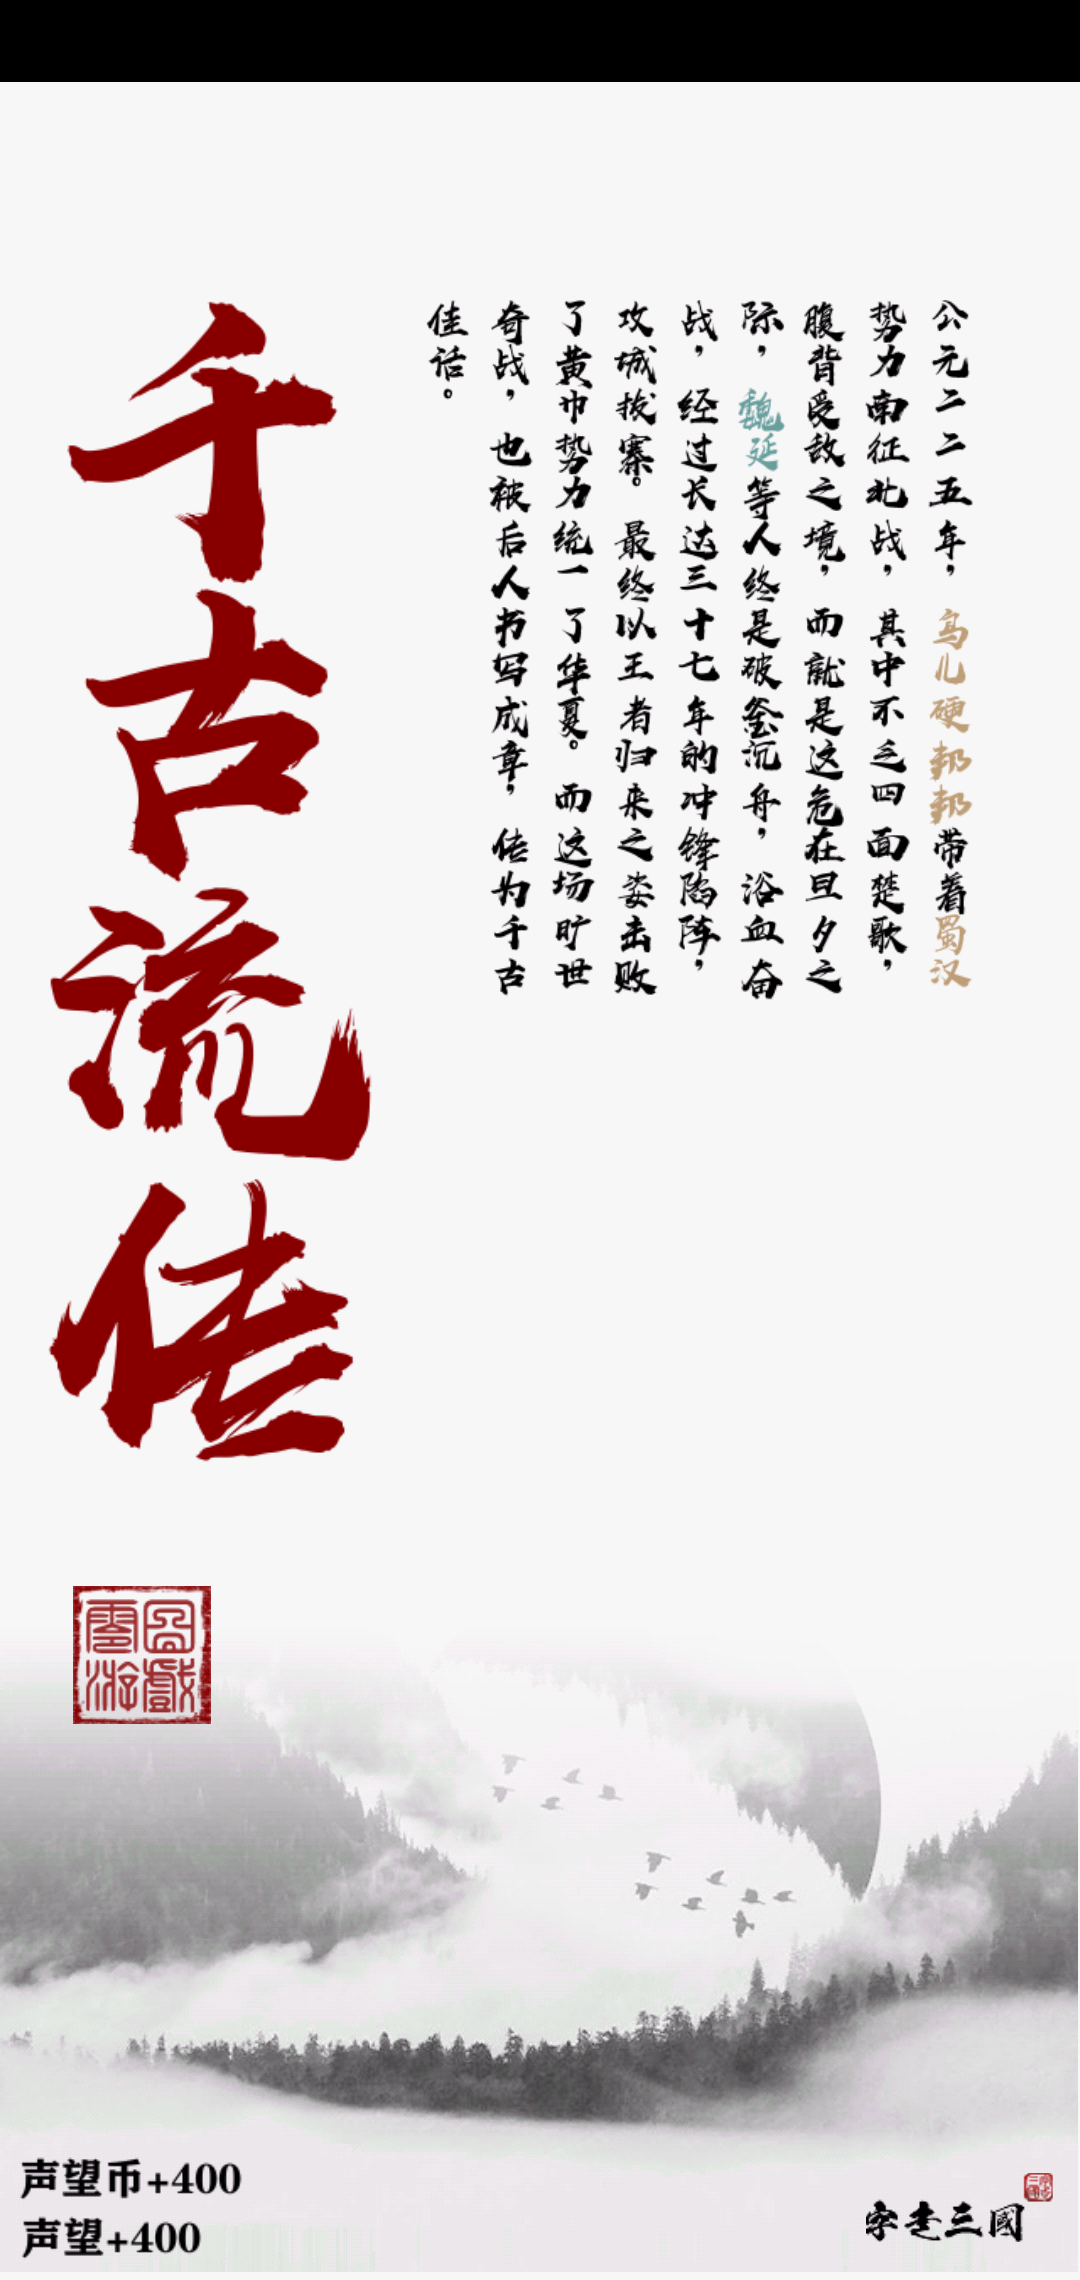 公元二二五年，鸟儿硬邦邦带着蜀汉
势力南征北战，其中不乏四面楚歌，
腹背受敌之境，而就是这危在旦夕之
际，魏延等人终是破釜沉舟，浴血奋
战，经过长达三十七年的冲锋陷阵，
攻城拔寨。最终以王者归来之姿击败
了黄巾势力统一了华夏。而这场旷世
奇战，也被后人书写成章，传为千古
佳话。
千古流传
声望币+400
声望+400